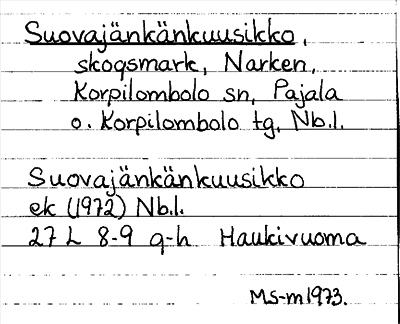 Suovajänkänkuusikko,
skogsmark, Narken,
Korpilombolo sn, Pajala
o. Korpilombolo tg, Nb.l.
Suovajänkänkuusikko
ek (1972) Nb.l.
27 L 8-9 g-h Haukivuoma
Ms-m 1973.